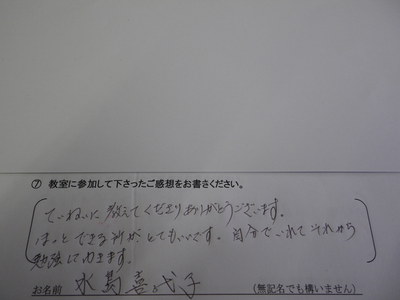 ⑦ 教室に参加して下さったご感想をお書きください。
ていねいに教えてくださりありがとうございます。
ほっとできる所がとてもいいです。自分でいれてそれから
勉強していきます。
お名前 水島喜 子 (無記名でも構いません)